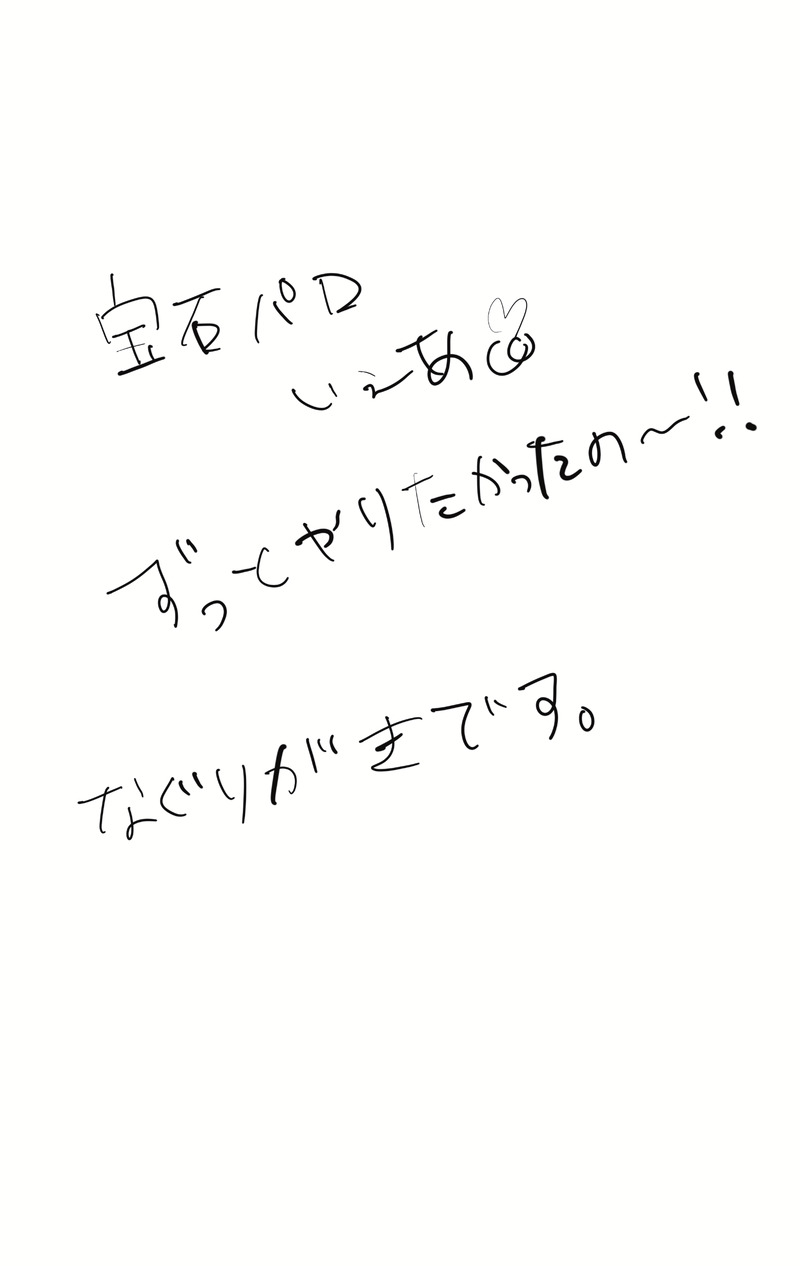 宝石パロ
いえあ
ずっとやりたかったの〜!!
なぐりがきです。